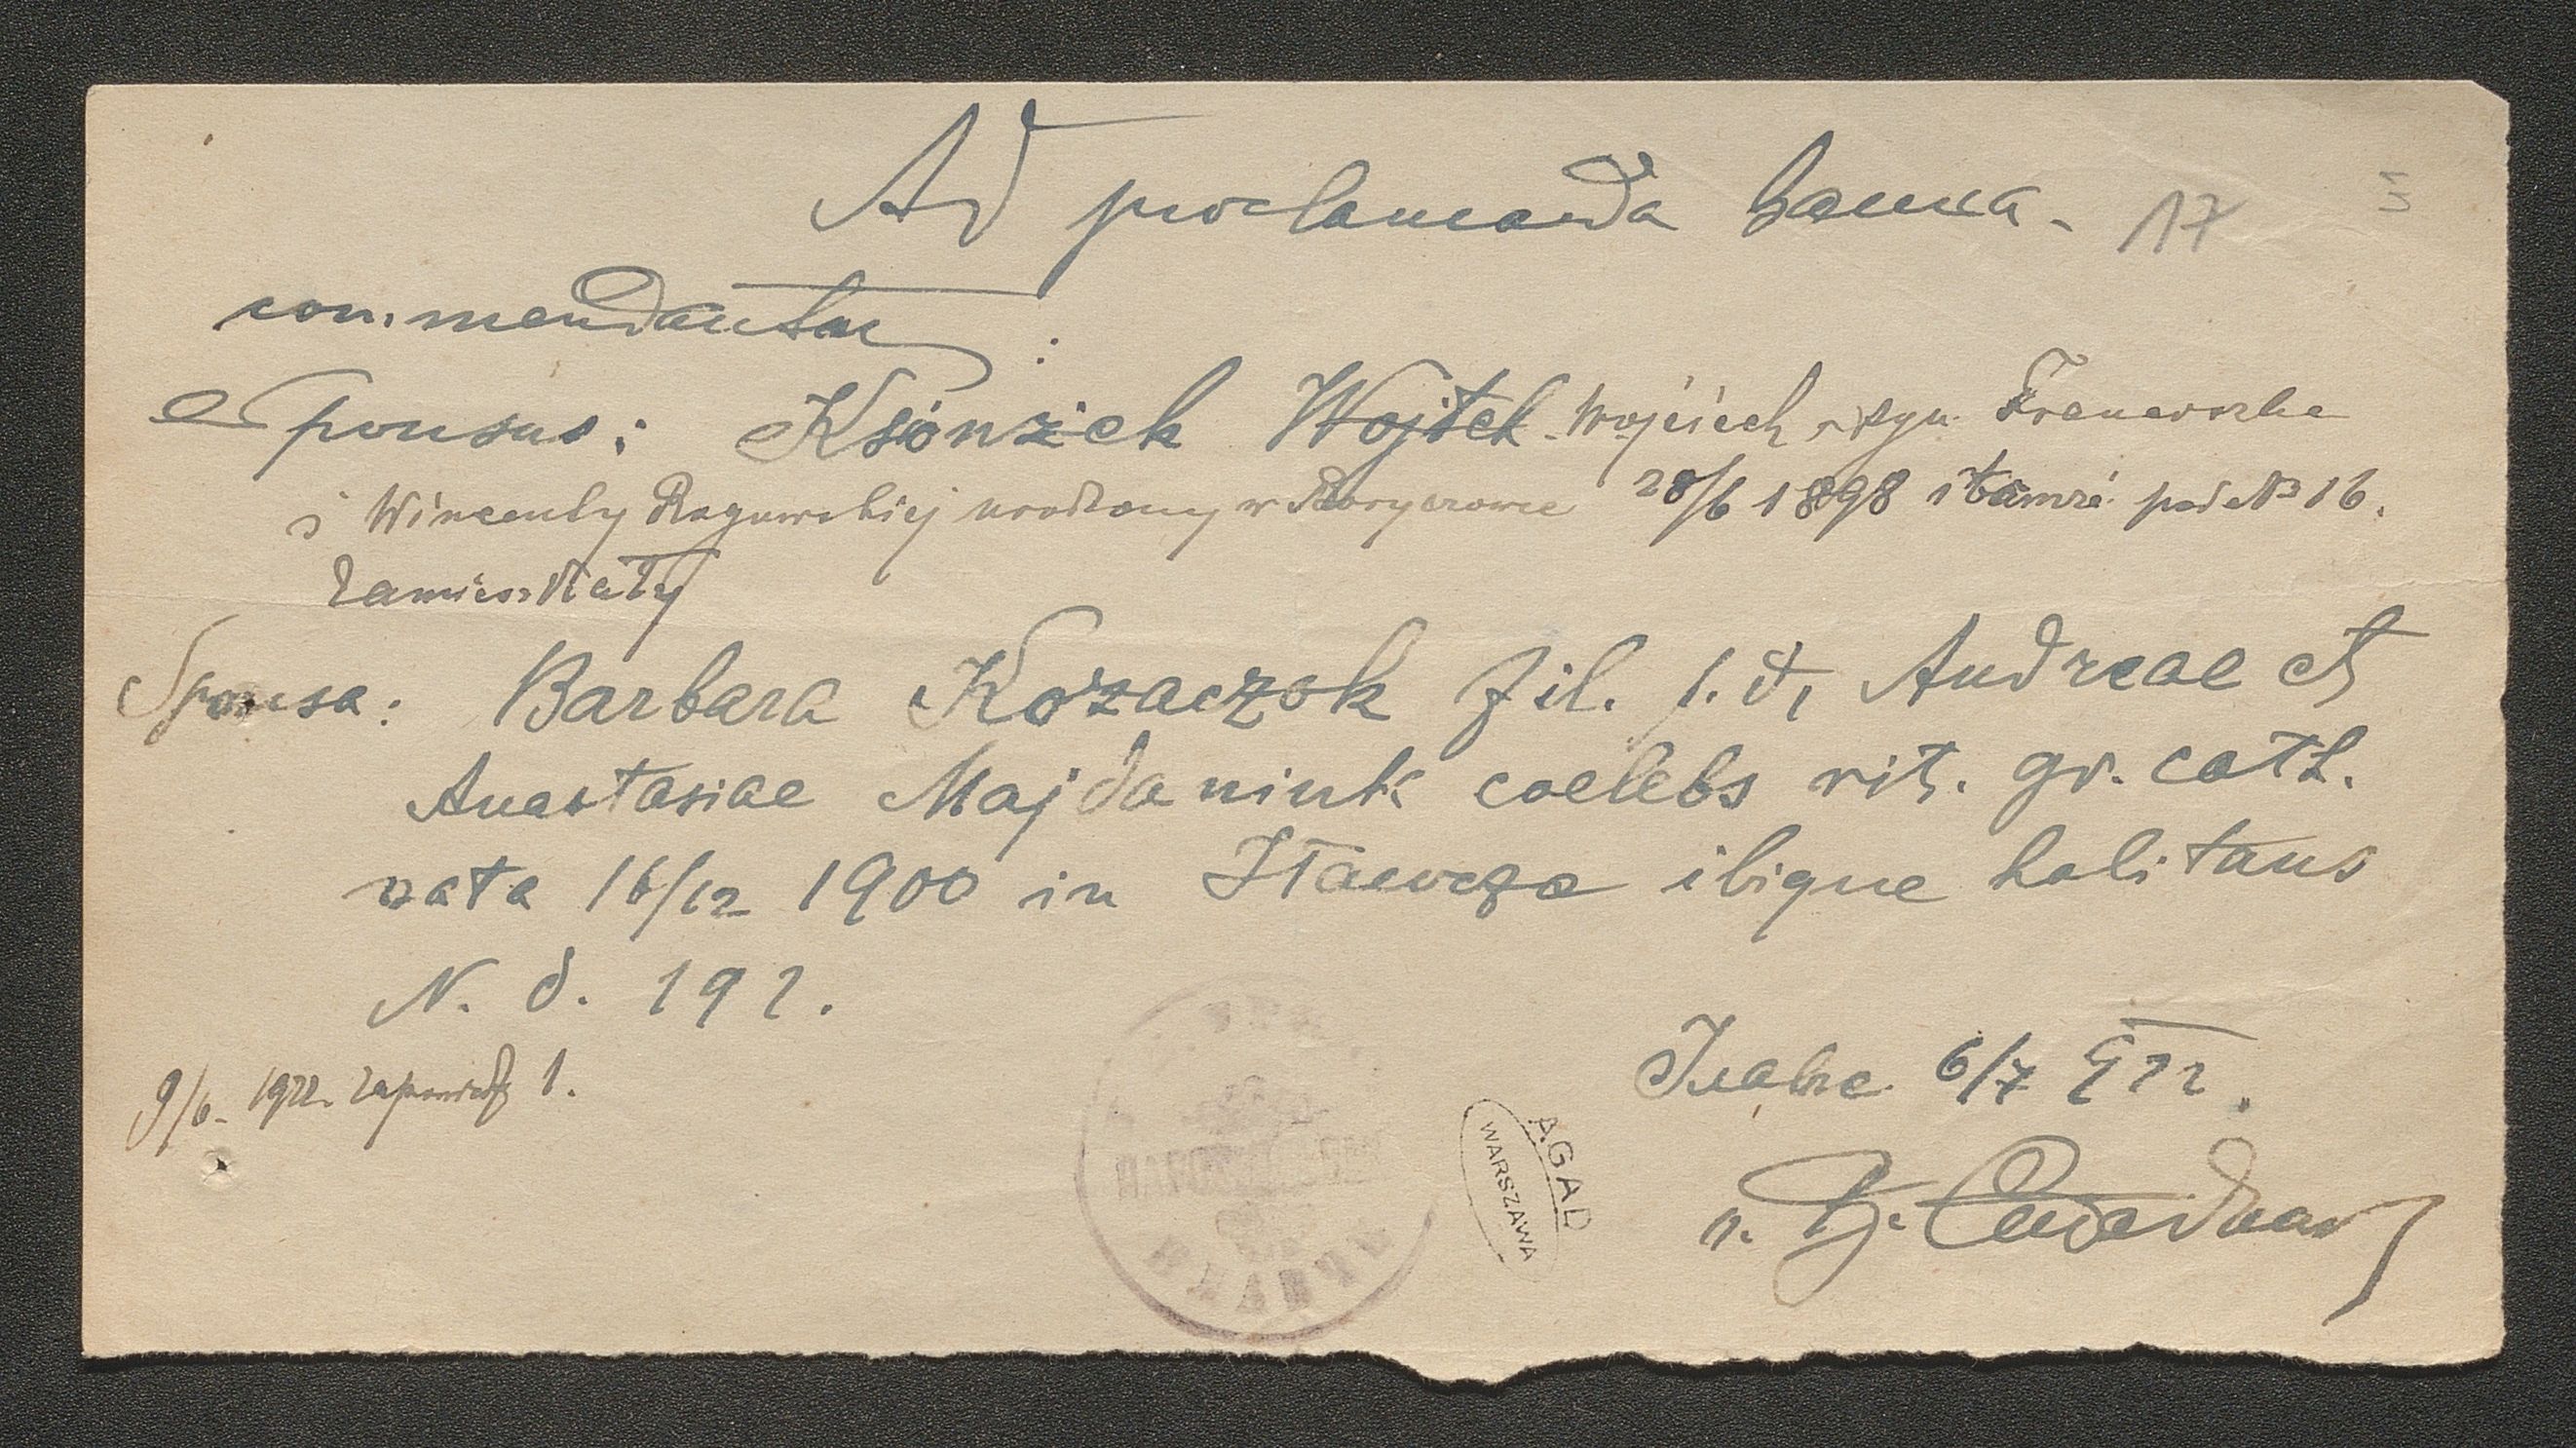 Ad proclamanda banna - 17
commendantur :
Sponsus : Ksionzek Wojtek Wojciech, syn Franciszka
i Wincenty Rogowskiej urodzony w 28/6 1898 i tamże pod № 16.
zamieszkały
Sponsa : Barbara Kozaczok fil. Andreae et
Anastasiae Majdaniuk coelebs rit. gr. cath.
nata 16/12 1900 in Iławcze ibique habitans
N. d. 192.
9/6. 1922. zapowiedź 1.
6/7 922.
A.G.A.D
WARSZAWA